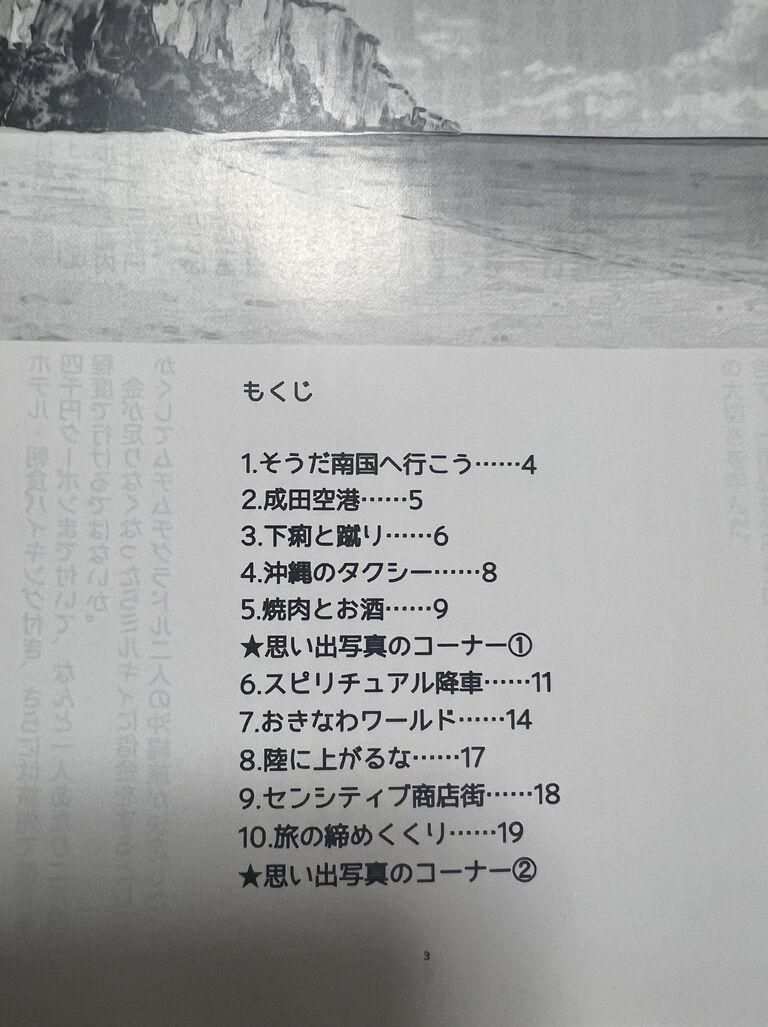 もくじ
1.そうだ南国へ行こう……4
2.成田空港……5
3.下痢と蹴り……6
4.沖縄のタクシー……8
5.焼肉とお酒……9
★思い出写真のコーナー①
6.スピリチュアル降車……11
7.おきなわワールド……14
8.陸に上がるな……17
9.センシティブ商店街……18
10.旅の締めくくり……19
★思い出写真のコーナー②
3